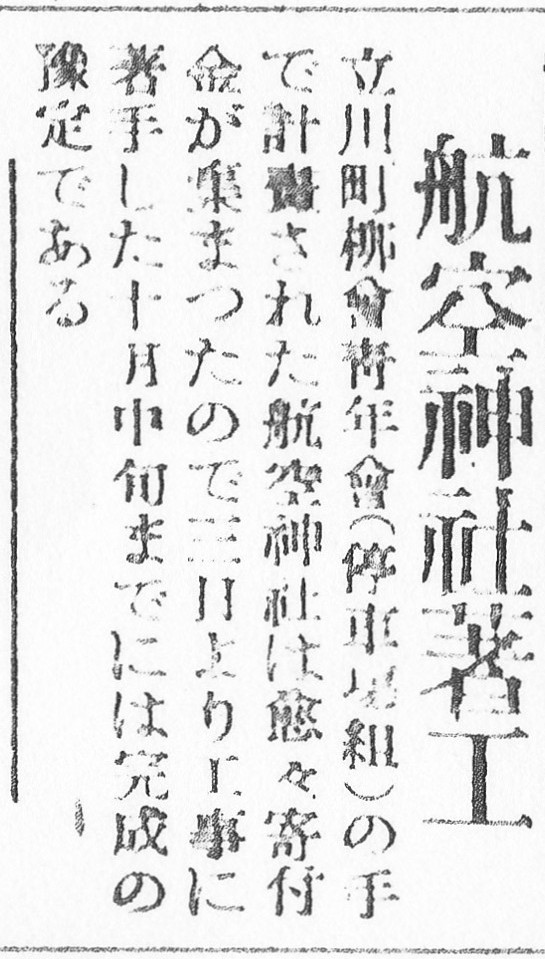 航空神社著工
立川町柳會靑年會（停車場組）の手
で計畫された航空神社は愈々寄付
金が集まつたので三日より工事に
著手した十月中旬までには完成の
豫定である